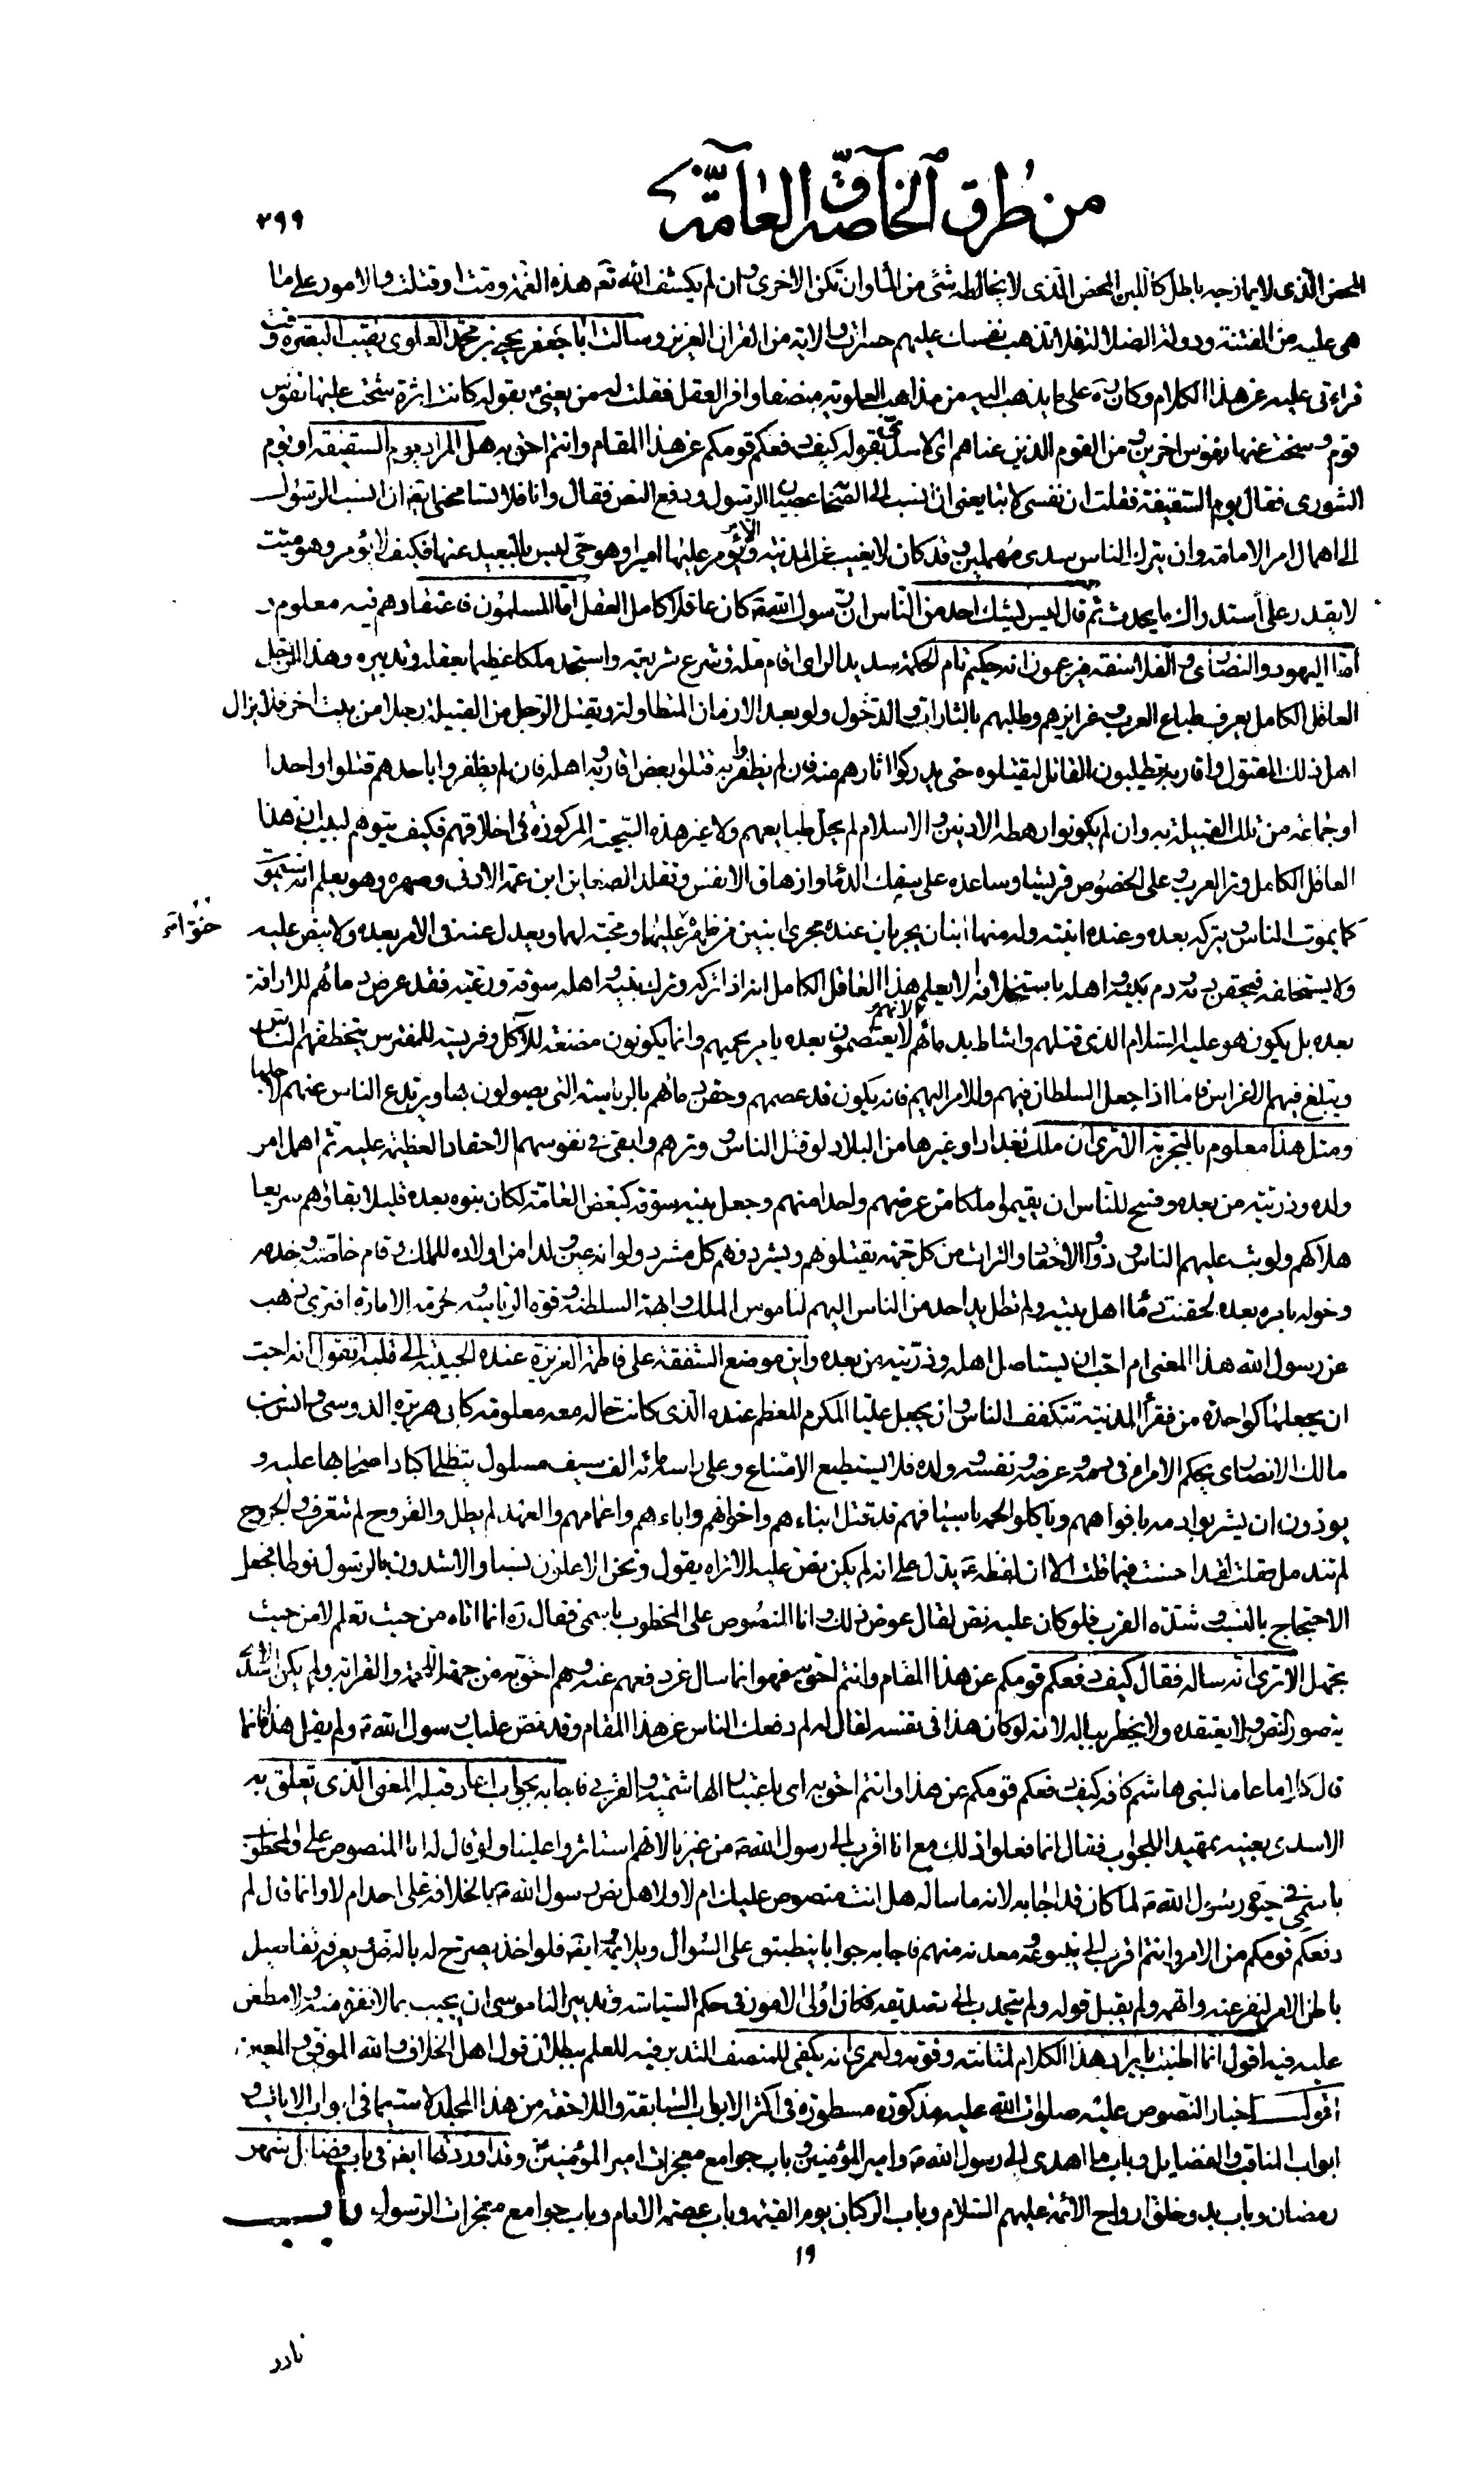 من طرق الخاصة و العامة
٢٩٩
المحض الذى لا يمازجه باطل كاللبن المحض الذى لا يخالطه شئ من الماء وان تكن الاخرى و ان لم يكشف الله تعم هذه الغمة ومت او قتلت و الامور على ما
هى عليه من الفتنة ودولة الضلال فلا تذهب نفسك عليهم حسرات و الاية من القران العزيز وسالت ابا جعفر يحيى بن محمد العلوى نقيب البصرة وقت
قراءتى عليه عن هذا الكلام وكان ره على ما يذهب اليه من مذاهب العلوية منصفا وافر العقل فقلت له من يعنى ع بقوله كانت اثرة شحت عليها نفوس
قوم و سخت عنها نفوس اخرين و من القوم الذين عناهم الاسدى بقوله كيف دفعكم قومكم عن هذا المقام وانتم احق به هل المراد يوم السقيفة او يوم
الشورى فقال يوم السقيفة فقلت ان نفسى لا تتابعنى ان انسب الى الصحابة عصيان الرسول و دفع النص فقال وانا فلا تسامحنى ايضا ان انسب الرسول
الى اهمال امر الامامة وان يترك الناس سدى مهملين و قد كان لا يغيب عن المدينة الا و يؤمر عليها اميرا وهو حى ليس بالبعيد عنها فكيف لا يؤمر وهو ميت
لا يقدر على استدراك ما يحدث ثم قال ليس يشك احد من الناس ان رسول الله ص كان عاقلا كامل العقل اما المسلمون فاعتقادهم فيه معلوم و
اما اليهود والنصارى و الفلاسفة فيزعمون انه حكيم تام الحكمة سديد الراى اقام ملة و شرع شريعة واستجد ملكا عظيما بعقله و تدبيره وهذا الرجل
العاقل الكامل يعرف طباع العرب و غرايزهم وطلبهم بالثارات و الذحول ولو بعد الازمان المتطاولة ويقتل الرجل من القبيلة رجلا من بيت اخر فلا يزال
اهل ذلك المقتول و اقاربه يتطلبون القاتل ليقتلوه حتى يدركوا ثارهم منه فان لم يظفروا به قتلوا بعض اقاربه و اهله فان لم يظفروا باحدهم قتلوا واحدا
او جماعة من تلك القبيلة به وان لم يكونوا رهطه الادنين و الاسلام لم يحل طبايعهم ولا غير هذه السجية المركوزة فى اخلاقهم فكيف يتوهم لبيب ان هذا
العاقل الكامل وتر العرب و على الخصوص قريشا وساعده على سفك الدماء و ازهاق الانفس و تقلد الضغاين ابن عمه الادنى وصهره وهو يعلم انه سيموت
كما يموت الناس و يتركه بعده وعنده ابنته وله منها ابنان يجريان عنده مجرى ابنين من ظهره حنوا عليهما ومحبة لهما ويعدل عنه فى الامر بعده ولا ينص عليه
ولا يستخلفه فيحقن دمه و دم بنيه و اهله باستخلافه الا يعلم هذا العاقل الكامل انه اذا تركه و ترك بنيه و اهله سوقة و رعية فقد عرض دمائهم للاراقة
بعده بل يكون هو عليه السلام الذى قتلهم و اشاط بدمائهم لانهم لا يعتصمون بعده بامر يحميهم وانما يكونون مضغة للآكل وفريسة للمفترس يتخطفهم الناس
ويبلغ فيهم الاغراض فاما اذا جعل السلطان فيهم والامر اليهم فانه يكون قد عصمهم وحقن دمائهم بالرياسة التى يصولون بها ويرتدع الناس عنهم لاجلها
ومثل هذا معلوم بالتجربة الا ترى ان ملك بغداد او غيرها من البلاد لو قتل الناس و وترهم وابقى فى نفوسهم الاحقاد العظيمة عليه ثم اهمل امر
ولده وذريته من بعده و فسح للناس ان يقيموا ملكا من عرضهم واحدا منهم وجعل بنيه سوقة كبعض العامة لكان بنوه بعده قليلا بقاؤهم سريعا
هلاكهم ولوثب عليهم الناس ذوو الاحقاد و الترات من كل جهة يقتلونهم و يشردونهم كل مشرد ولو انه عين ولدا من اولاده للملك و قام خاصته و خدمه
وخوله بامره بعده لحقنت دماء اهل بيته ولم تطل يد احد من الناس اليهم لناموس الملك و ابهة السلطنة و قوة الرياسة و حرمة الامارة افترى ذهب
عن رسول الله هذا المعنى ام احب ان يستاصل اهله و ذريته من بعده و اين موضع الشفقة على فاطمة العزيزة عنده الحبيبة الى قلبه ا تقول انه احب
ان يجعلها كواحدة من فقراء المدينة تتكفف الناس و ان يجعل عليا المكرم المعظم عنده الذى كانت حاله معه معلومة كابى هريرة الدوسى و انس بن
مالك الانصارى يحكم الامراء فى دمه و عرضه و نفسه و ولده فلا يستطيع الامتناع و على راسه مائة الف سيف مسلول يتلظى اكباد اصحابها عليه و
يودون ان يشربوا دمه بافواههم وياكلوا لحمه باسنانهم قد قتل ابناءهم واخوانهم واباءهم واعمامهم والعهد لم يطل والقروح لم تتقرف و الجروح
لم تندمل فقلت لقد احسنت فيما قلت الا ان لفظه ع يدل على انه لم يكن نص عليه الا تراه يقول ونحن الاعلون نسبا و الاشدون بالرسول نوطا فجعل
الاحتجاج بالنسب و شدة القرب فلو كان عليه نص لقال عوض ذلك و انا المنصوص على المخطوب باسمى فقال ره انما اتاه من حيث تعلم لا من حيث
تجهل الا ترى انه ساله فقال كيف دفعكم قومكم عن هذا المقام وانتم احق به فهو انما سال عن دفعهم عنه و هم احق به من جهة اللحمة والقرابة ولم يكن الاسدى
يتصور النص و لا يعتقده ولا يخطر بباله لانه لو كان هذا فى نفسه لقال له لم دفعك الناس عن هذا المقام وقد نص عليك رسول الله ص ولم يقل هذا وانما
قال كلاما عاما لبنى هاشم كافة كيف دفعكم قومكم عن هذا وانتم احق به اى باعتبار الهاشمية و القربى فاجابه بجواب اعاد قبله المعنى الذى تعلق به
الاسدى بعينه تمهيدا للجواب فقال انما فعلوا ذلك مع انا اقرب الى رسول الله ص من غيرنا لانهم استاثروا علينا ولو قال له انا المنصوص على والمخطوب
باسمى فى حيوة رسول الله ص لما كان قد اجابه لانه ما ساله هل انت منصوص عليك ام لا ولا هل نص رسول الله ص بالخلافة على احد ام لا وانما قال لم
دفعكم قومكم من الامر و انتم اقرب الى ينبوعه و معدنه منهم فاجابه جوابا ينطبق على السؤال و يلايمه ايضا فلو اخذ يصرح له بالنص و يعرفه تفاصيل
باطن الامر لنفر عنه واتهمه ولم يقبل قوله ولم ينجذب الى تصديقه فكان اولى الامور فى حكم السياسة و تدبير الناموس ان يجيب بما لا نفرة منه و لا مطعن
عليه فيه اقول انما اطنبت بايراد هذا الكلام لمتانته و قوته ولعمرى انه يكفى للمنصف المتدبر فيه للعلم ببطلان قول اهل الخلاف و الله الموفق و المعين
اقول اخبار النصوص عليه صلوات الله عليه مذكورة مسطورة فى اكثر الابواب السابقة واللاحقة من هذا المجلد لا سيما فى ابواب الايات و
ابواب المناقب و الفضايل و باب ما اهدى الى رسول الله ص و امير المؤمنين و باب جوامع معجزات امير المؤمنين و قد اوردتها ايضا فى باب فضائل شهر
رمضان وباب بدو خلق ارواح الائمة عليهم السلام و باب الركبان يوم القيمة و باب عصمة الامام و باب جوامع معجزات الرسول باب
١٩
نادر